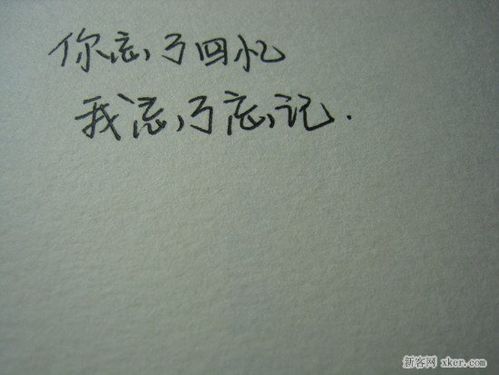 你忘了回忆
我忘了忘记.
新客网 xker.com